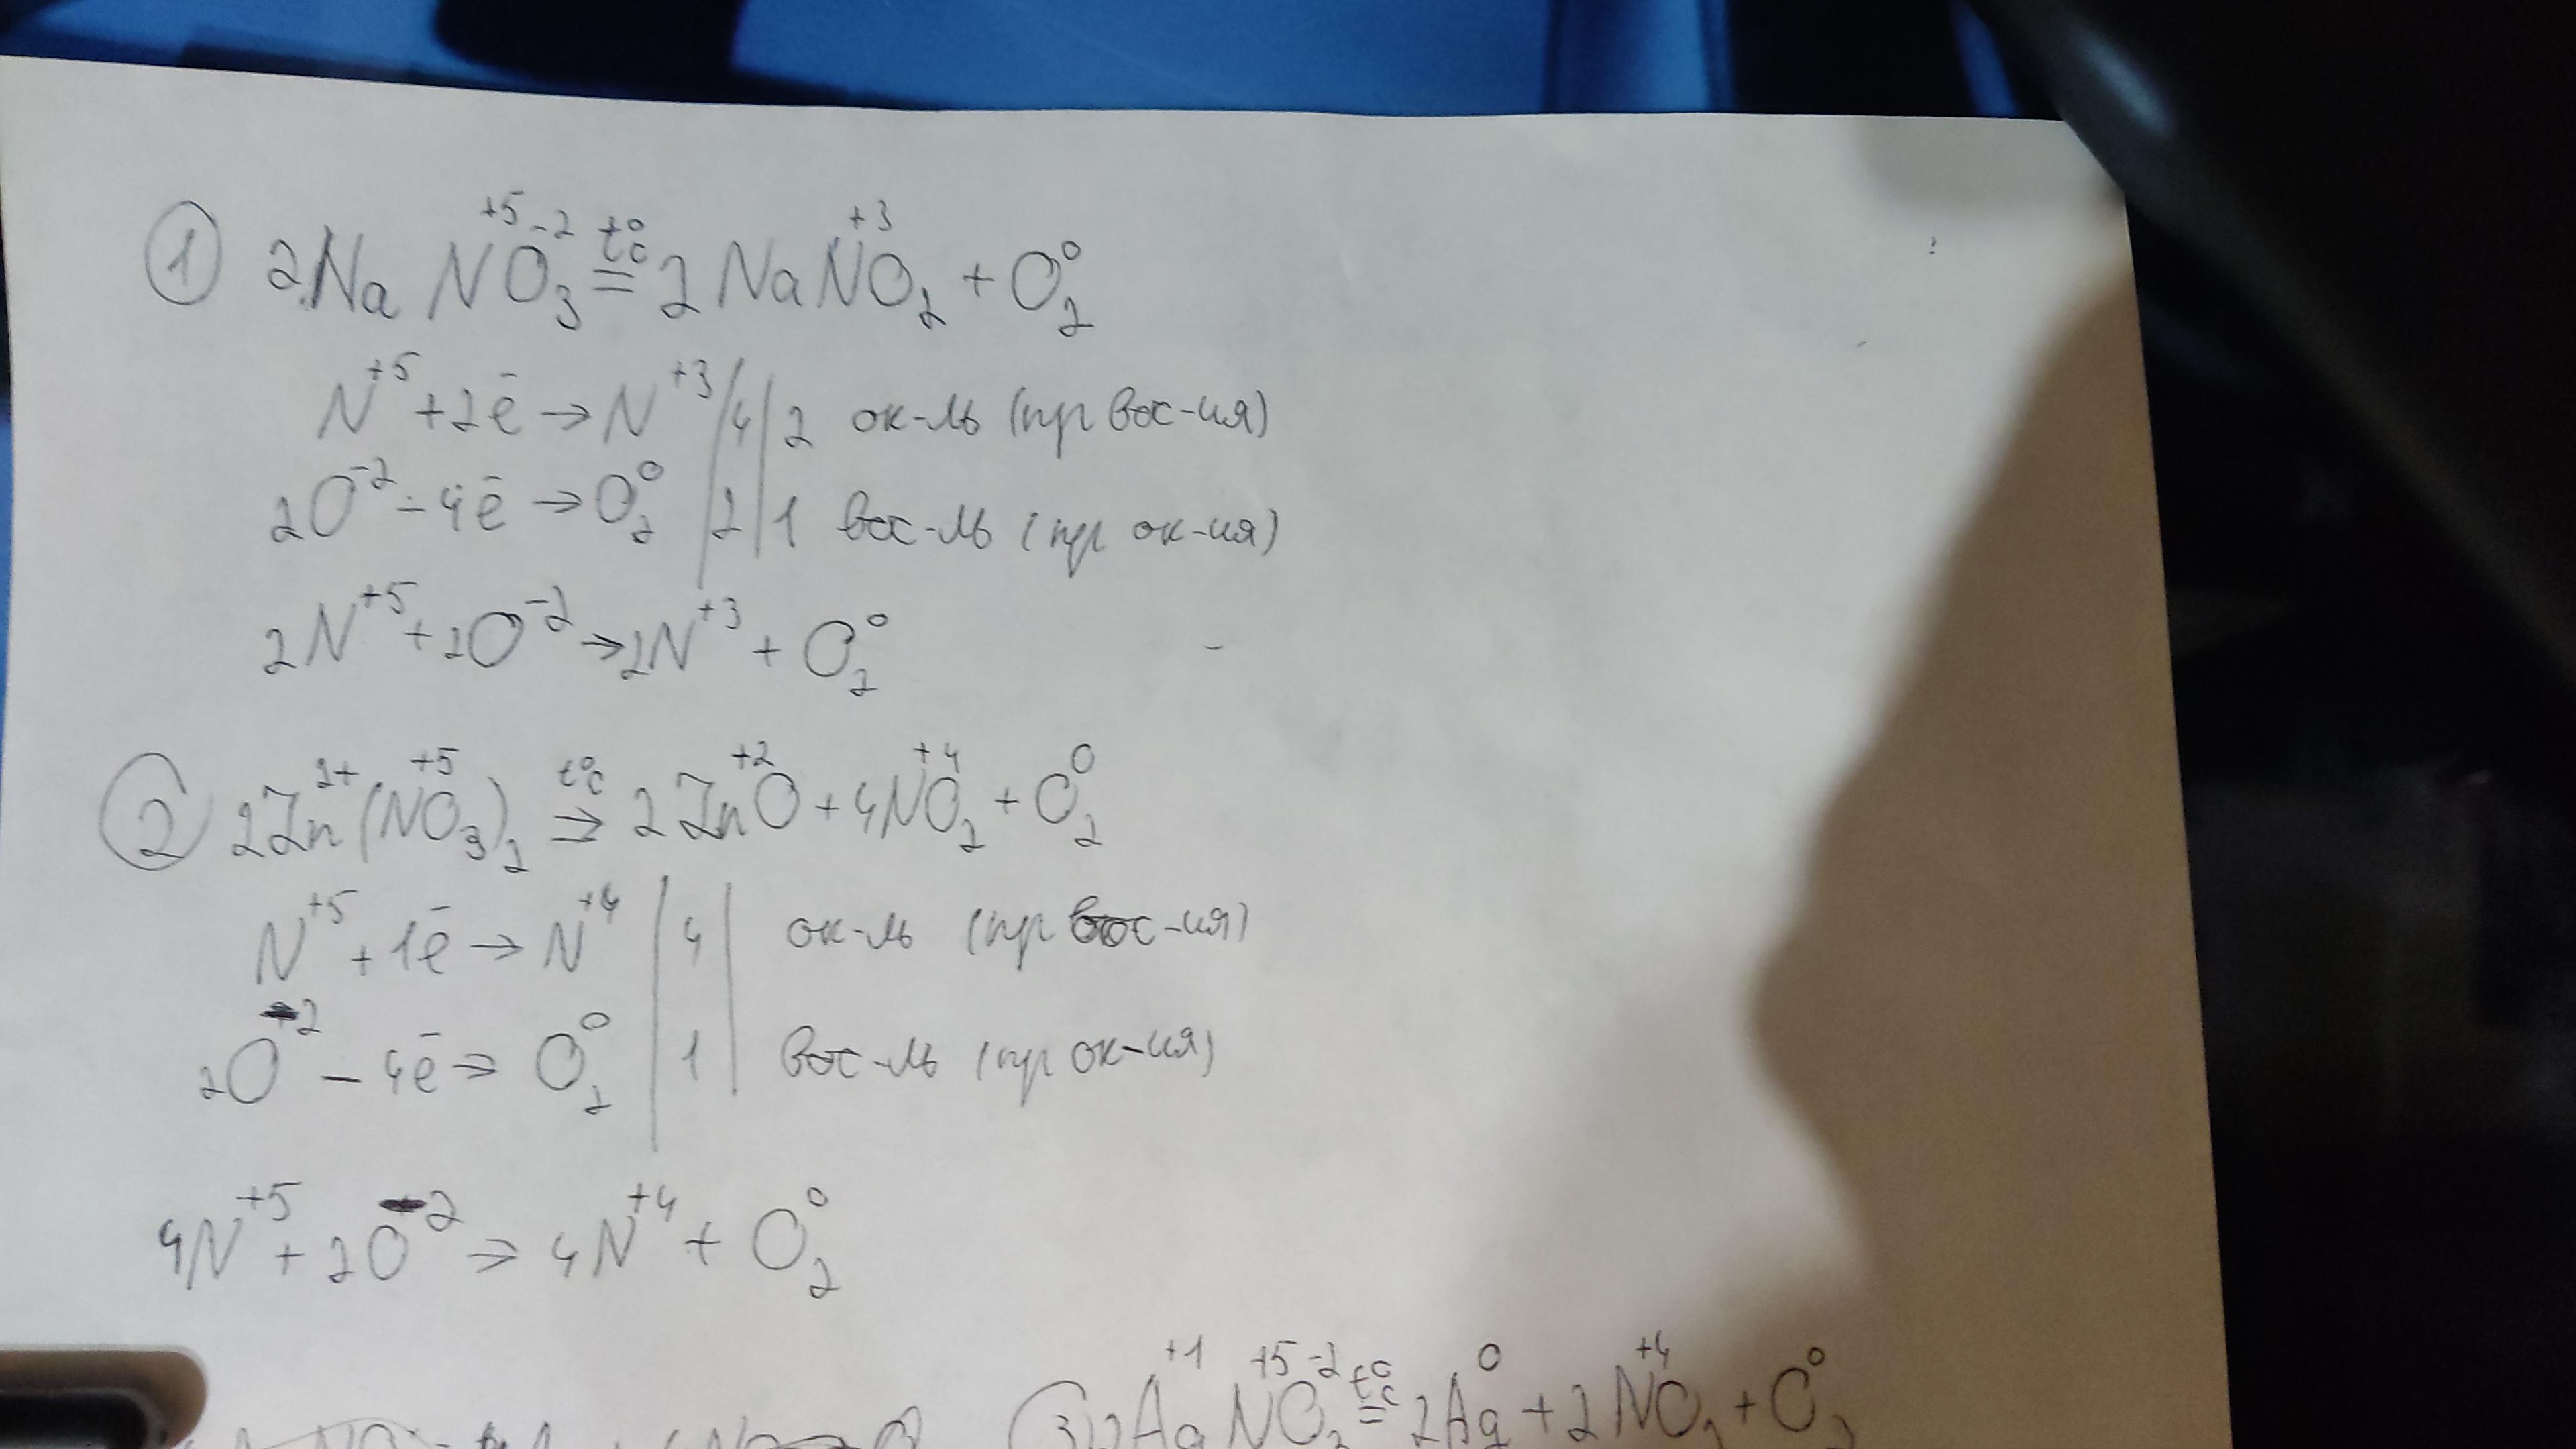 ① 2NaN⁺⁵O₃⁻² =t°C 2NaN⁺³O₂ + O₂⁰
N⁺⁵ + 2ē → N⁺³ | 4 | 2 ок-ль (пр вос-ия)
2O⁻² - 4ē → O₂⁰ | 2 | 1 вос-ль (пр ок-ия)
2N⁺⁵ + 2O⁻² → 2N⁺³ + O₂⁰
② 2Zn²⁺(N⁺⁵O₃)₂ t°C⇒ 2Zn⁺²O + 4N⁺⁴O₂ + O₂⁰
N⁺⁵ + 1ē → N⁺⁴ | 4 | ок-ль (пр вос-ия)
2O⁻² - 4ē → O₂⁰ | 1 | вос-ль (пр ок-ия)
4N⁺⁵ + 2O⁻² → 4N⁺⁴ + O₂⁰
③ 2Ag⁺¹N⁺⁵O₃⁻² =t°C 2Ag⁰ + 2N⁺⁴O₂ + O₂⁰